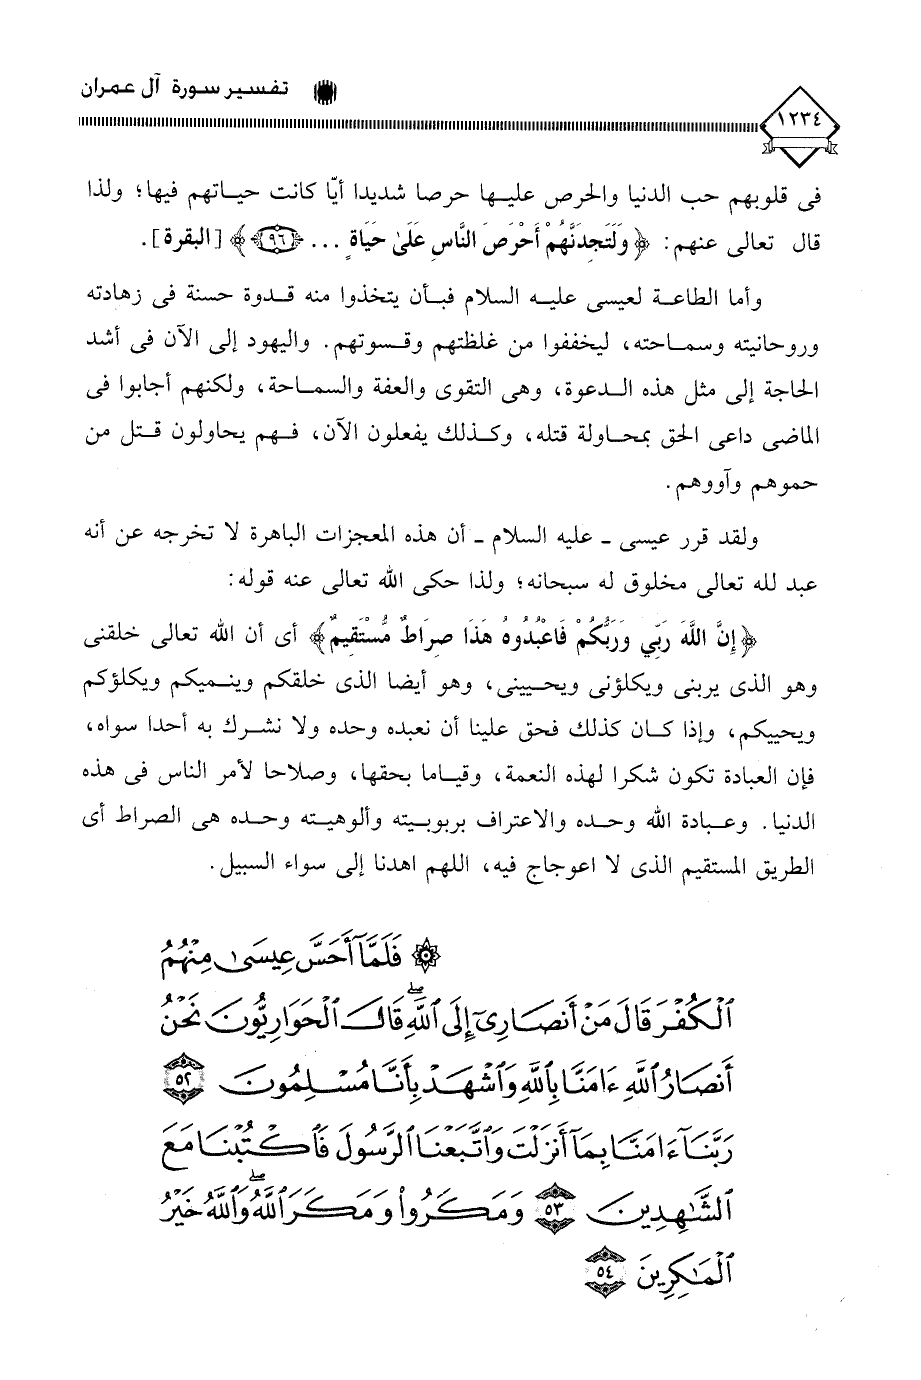 تفسير سورة آل عمران
١٢٣٤
فى قلوبهم حب الدنيا والحرص عليها حرصا شديدا أيّا كانت حياتهم فيها؛ ولذا
قال تعالى عنهم: ﴿ وَلَتَجِدَنَّهُمْ أَحْرَصَ النَّاسِ عَلَىٰ حَيَاةٍ ... ﴿٩٦﴾﴾ [البقرة].
وأما الطاعة لعيسى عليه السلام فبأن يتخذوا منه قدوة حسنة فى زهادته
وروحانيته وسماحته، ليخففوا من غلظتهم وقسوتهم. واليهود إلى الآن فى أشد
الحاجة إلى مثل هذه الدعوة، وهى التقوى والعفة والسماحة، ولكنهم أجابوا فى
الماضى داعى الحق بمحاولة قتله، وكذلك يفعلون الآن، فهم يحاولون قتل من
حموهم وآووهم.
ولقد قرر عيسى ـ عليه السلام ـ أن هذه المعجزات الباهرة لا تخرجه عن أنه
عبد لله تعالى مخلوق له سبحانه؛ ولذا حكى الله تعالى عنه قوله:
﴿ إِنَّ اللَّهَ رَبِّي وَرَبُّكُمْ فَاعْبُدُوهُ هَذَا صِرَاطٌ مُّسْتَقِيمٌ﴾ أى أن الله تعالى خلقنى
وهو الذى يربنى ويكلؤنى ويحيينى، وهو أيضا الذى خلقكم وينميكم ويكلؤكم
ويحييكم، وإذا كان كذلك فحق علينا أن نعبده وحده ولا نشرك به أحدا سواه،
فإن العبادة تكون شكرا لهذه النعمة، وقياما بحقها، وصلاحا لأمر الناس فى هذه
الدنيا. وعبادة الله وحده والاعتراف بربوبيته وألوهيته وحده هى الصراط أى
الطريق المستقيم الذى لا اعوجاج فيه، اللهم اهدنا إلى سواء السبيل.
۞ فَلَمَّآ أَحَسَّ عِيسَىٰ مِنْهُمُ
ٱلْكُفْرَ قَالَ مَنْ أَنصَارِىٓ إِلَى ٱللَّهِ ۖ قَالَ ٱلْحَوَارِيُّونَ نَحْنُ
أَنصَارُ ٱللَّهِ ءَامَنَّا بِٱللَّهِ وَٱشْهَدْ بِأَنَّا مُسْلِمُونَ ٥٢
رَبَّنَآ ءَامَنَّا بِمَآ أَنزَلْتَ وَٱتَّبَعْنَا ٱلرَّسُولَ فَٱكْتُبْنَا مَعَ
ٱلشَّٰهِدِينَ ٥٣ وَمَكَرُوا۟ وَمَكَرَ ٱللَّهُ ۖ وَٱللَّهُ خَيْرُ
ٱلْمَٰكِرِينَ ٥٤